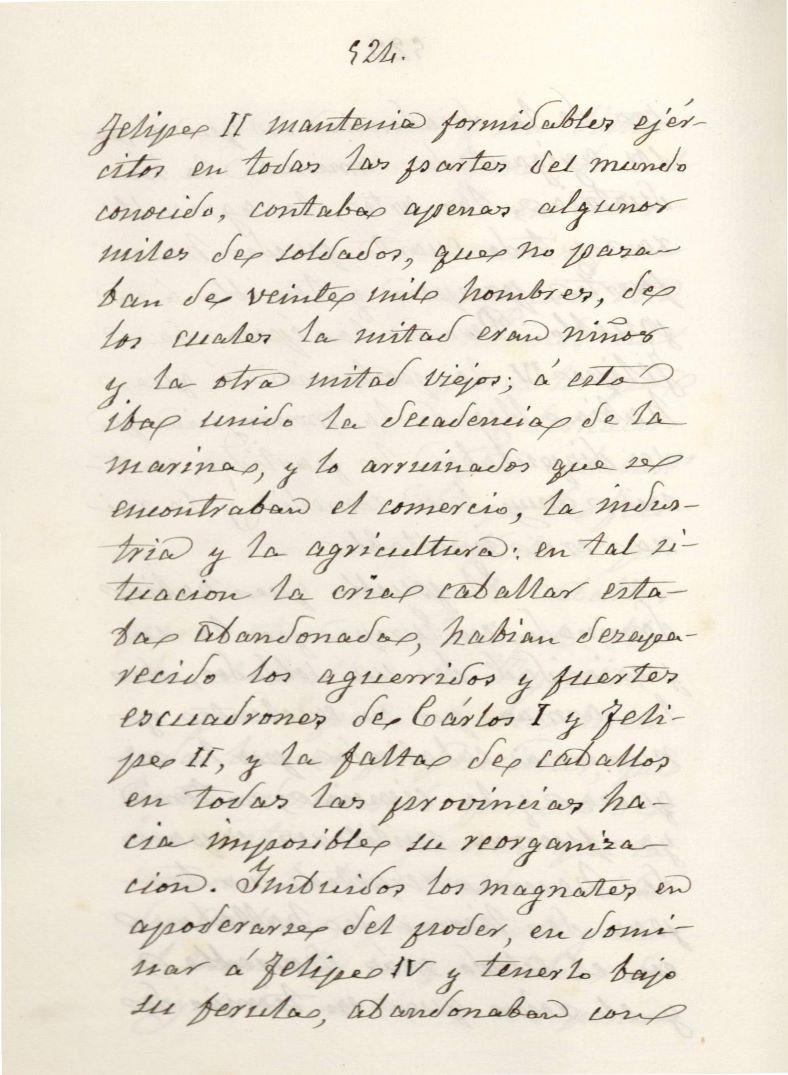 524.
Felipe II mantenia formidables ejér-
citos en todas las partes del mundo
conocido, contaba apenas algunos
miles de soldados, que no pasa-
ban de veinte mil hombres, de
los cuales la mitad eran niños
y la otra mitad viejos; á esto
iba unido la decadencia de la
marina, y lo arruinados que se
encontraban el comercio, la indus-
tria y la agricultura: en tal si-
tuacion la cria caballar esta-
ba abandonada, habian desapa-
recido los aguerridos y fuertes
escuadrones de Cárlos I y Feli-
pe II, y la falta de caballos
en todas las provincias ha-
cia imposible su reorganiza-
cion. Imbuidos los magnates en
apoderarse del poder, en domi-
nar á Felipe IV y tenerlo bajo
su ferula, abandonaban con